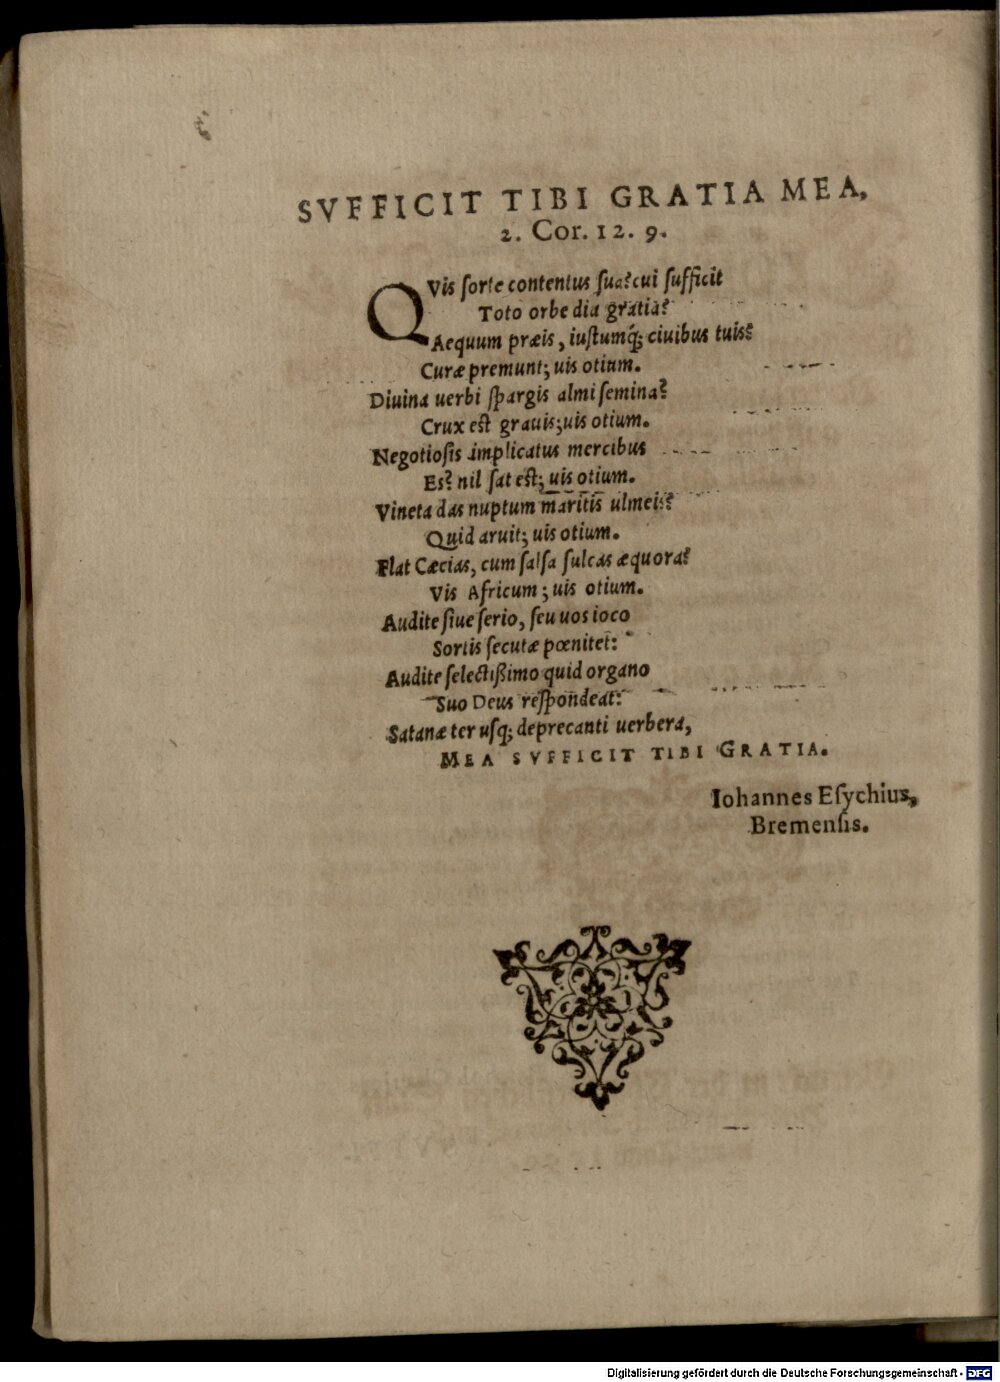 SVFFICIT TIBI GRATIA MEA,
2. Cor. 12. 9.
QVis ſorte contentus ſua? cui ſufficit
Toto orbe dia gratia?
Aequum præis, iuſtumq́; ciuibus tuis?
Curæ premunt; uis otium.
Diuina uerbi ſpargis almi ſemina?
Crux eſt grauis; uis otium.
Negotioſis implicatus mercibus
Es? nil ſat eſt; uis otium.
Vineta das nuptum maritis ulmeis?
Quid aruit; uis otium.
Flat Cæcias, cum ſalſa ſulcas æquora?
Vis Africum; uis otium.
Audite ſiue ſerio, ſeu uos ioco
Sortis ſecutæ pœnitet:
Audite ſelectißimo quid organo
Suo Deus reſpondeat:
Satanæ ter uſq; deprecanti uerbera,
MEA SVFFICIT TIBI GRATIA.
Iohannes Eſychius,
Bremenſis.
Digitalisierung gefördert durch die Deutsche Forschungsgemeinschaft - DFG